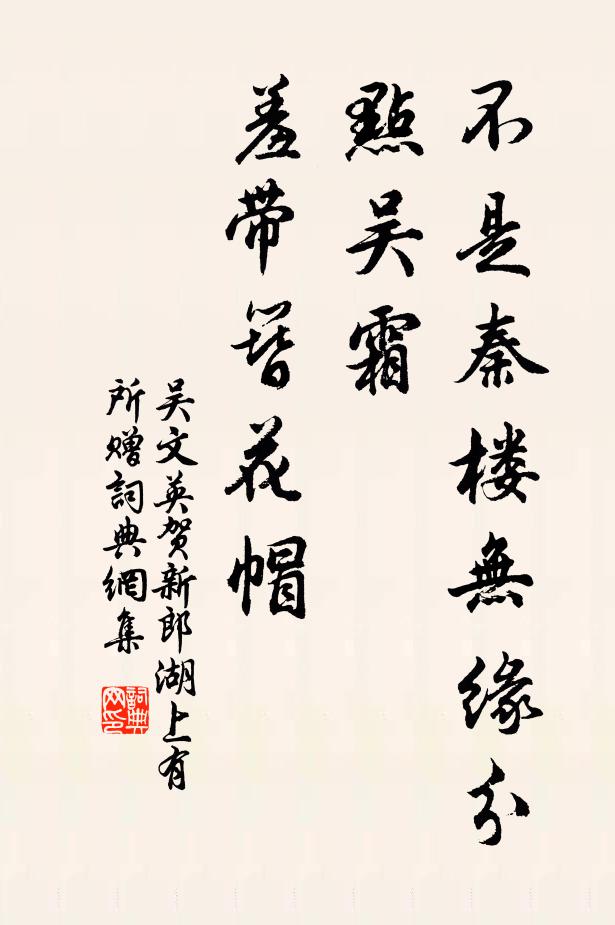 不是秦楼無緣分
點吴霜
羞带簪花帽
吴文英贺新郎湖上有
所赠詞典網集
詞典网印